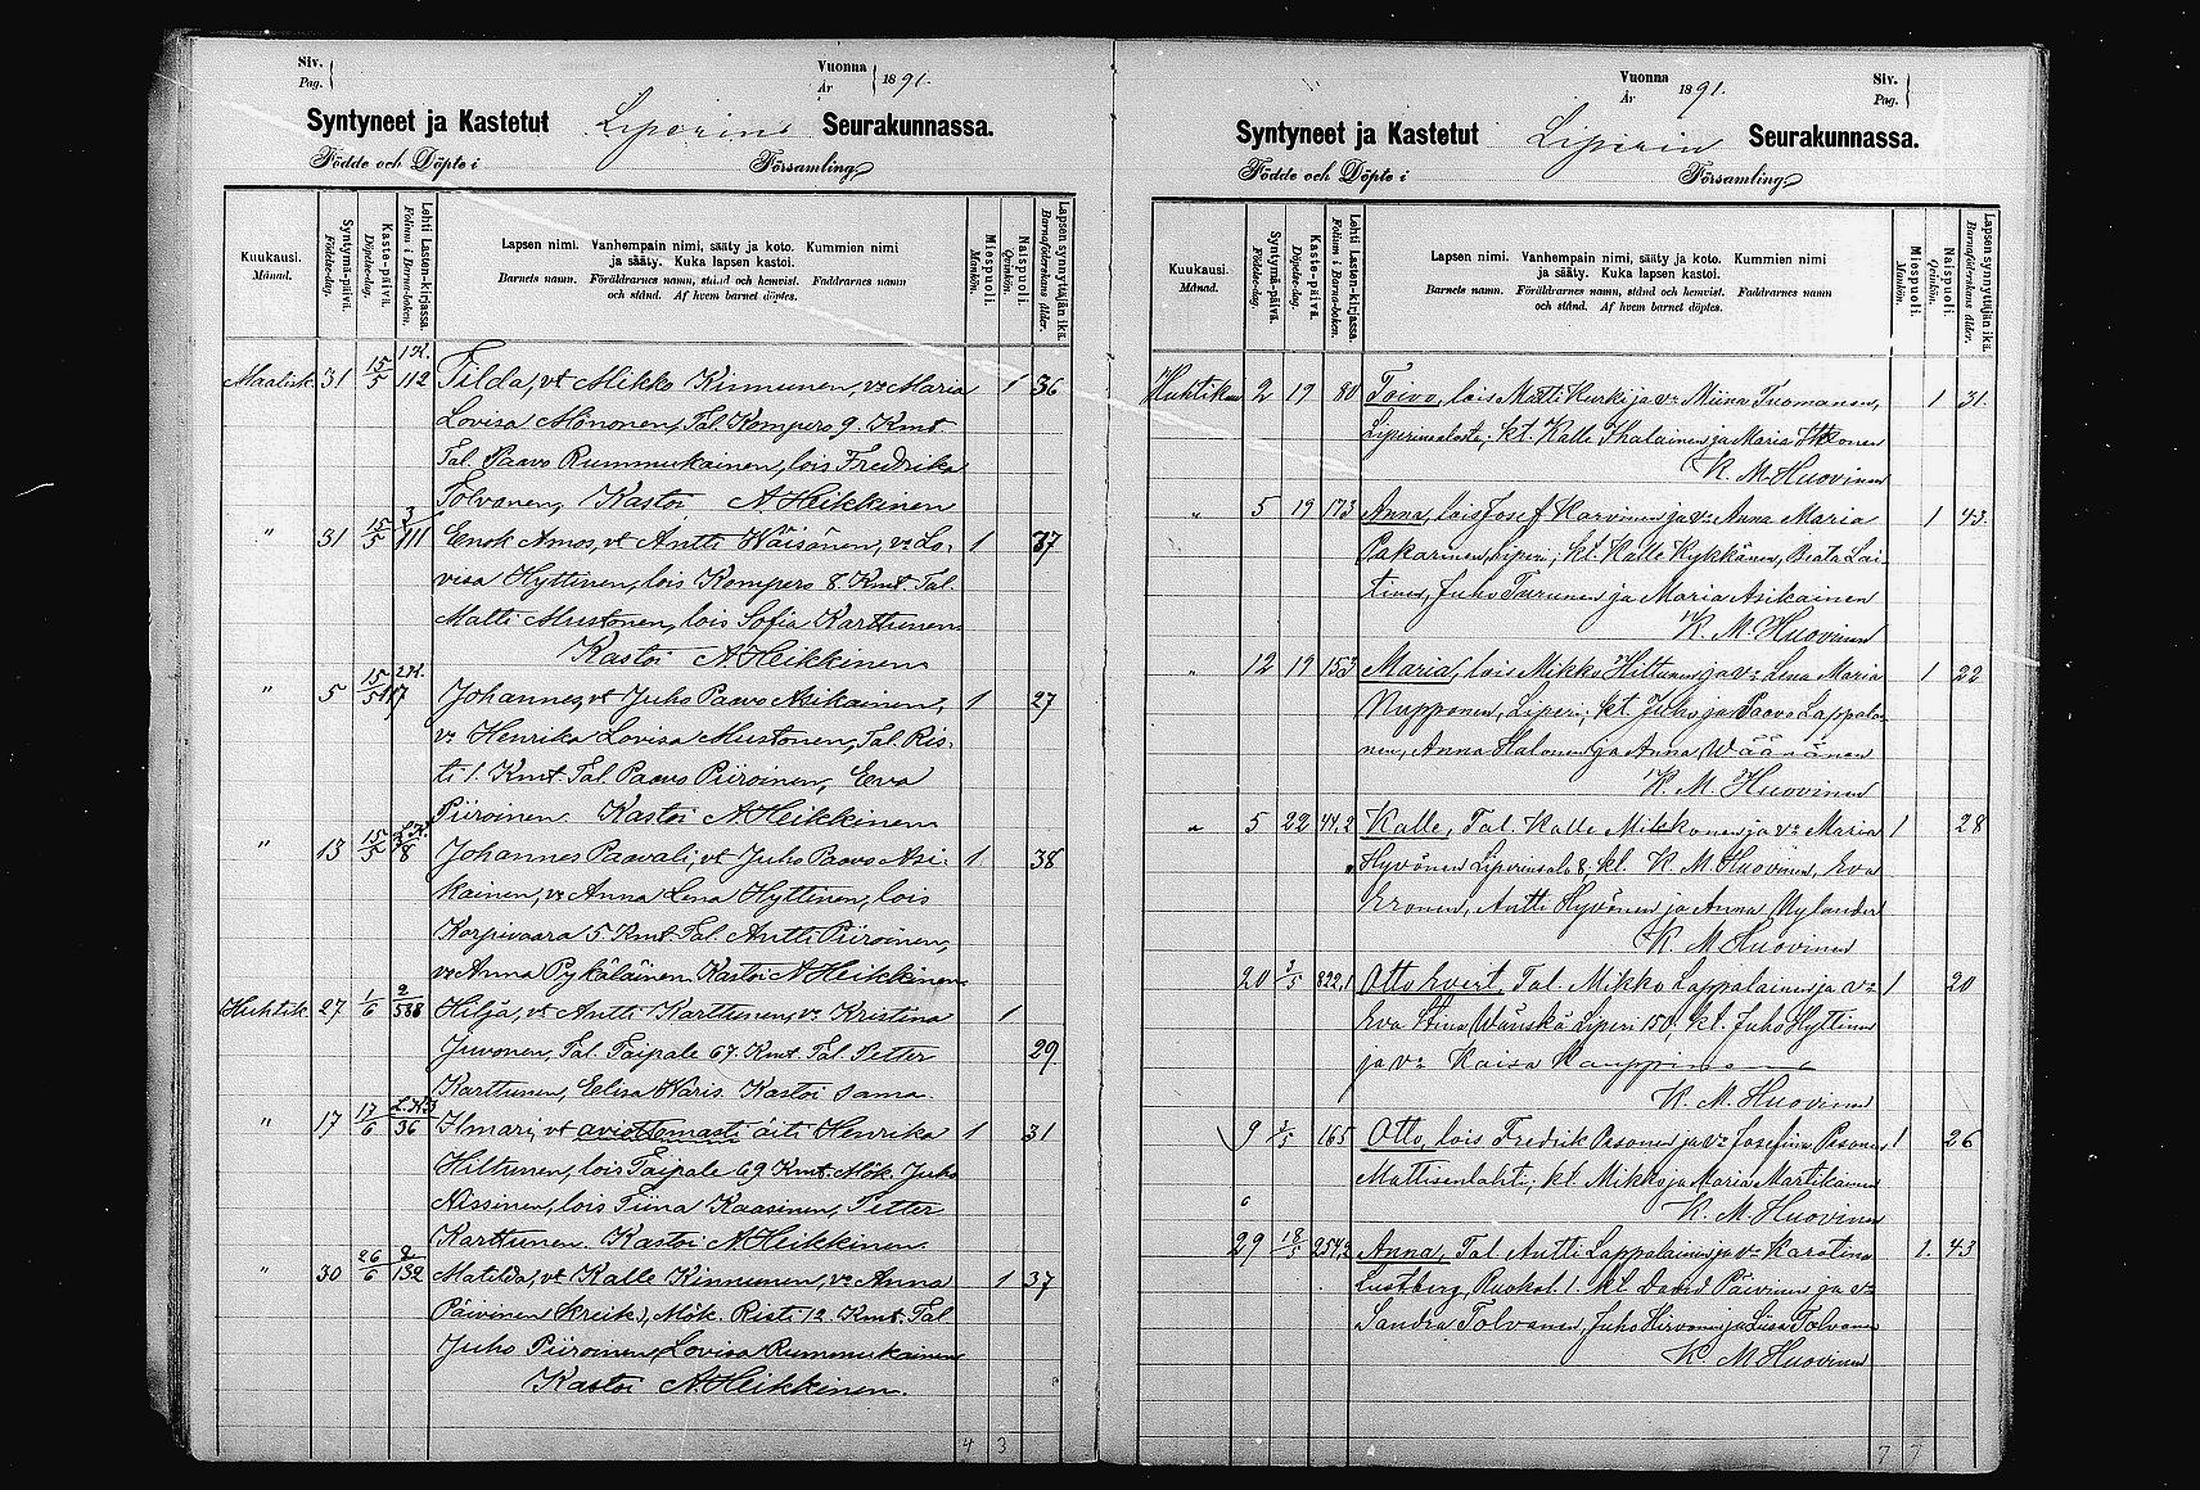 Siv.
Pag.
Vuonna
År
1891.
Syntyneet ja Kastetut Liperin Seurakunnassa.
Födde och Döpte i Församling
Kuukausi.
Månad.
Syntymä-päivä.
Födelse-dag.
Kaste-päivä.
Döpelse-dag.
Lehti Lasten-kirjassa.
Folium i Barna-boken.
Lapsen nimi. Vanhempain nimi, sääty ja koto. Kummien nimi
ja sääty. Kuka lapsen kastoi.
Barnets namn. Föräldrarnes namn, stånd och hemvist. Faddrarnes namn
och stånd. Af hvem barnet döptes.
Miespuoli.
Mankön.
Naispuoli.
Qvinkön.
Lapsen synnyttäjän ikä.
Barnaföderskans ålder.
1K.
Maalisk. 31 15/5 112 Tilda, vt Mikko Kinnunen, vo Maria 1 36
Lovisa Mönönen, Tal. Kompero 9. Kmt.
Tal. Paavo Rummukainen, lois Fredrika
Tolvanen, Kastoi A. Heikkinen
" 31 15/5 3/111 Enok Amos, vt Antti Wäisänen, vo Lo- 1 37
visa Hyttinen, lois Kompero 8. Kmt. Tal.
Matti Mustonen, lois Sofia Karttunen
Kastoi A Heikkinen
2K.
" 5 15/5 117 Johannes, vt Juho Paavo Asikainen, 1 27
vo Henrika Lovisa Mustonen, Tal. Ris-
ti 1. Kmt. Tal. Paavo Piiroinen, Eeva
Piiroinen Kastoi A. Heikkinen
" 13 15/5 8 Johannes Paavali, vt Juho Paavo Asi- 1 38
kainen, vo Anna Lena Hyttinen, lois
Korpivaara 5. Kmt. Tal. Antti Piiroinen,
vo Anna Pykäläinen Kastoi A Heikkinen
Huhtik. 27 1/6 2/588 Hilja, vt Antti Karttunen, vo Kristina 1
Juvonen, Tal. Taipale 67. Kmt. Tal. Petter 29
Karttunen, Eelisa Waris. Kastoi sama.
" 17 17/6 L.K.3/36 Ilmari, vt aviottomasti äiti Henrika 1 31
Hiltunen, lois Taipale 69. Kmt. Mök. Juho
Nissinen, lois Tiina Kaasinen, Petter
Karttunen. Kastoi A. Heikkinen.
" 30 26/6 2/132 Matilda, vt Kalle Kinnunen, vo Anna 1 37
Päivinen (kreik.), Mök. Risti 12. Kmt. Tal
Juho Piiroinen, Lovisa Rummukainen
Kastoi A. Heikkinen.
4 3
Vuonna
År
1891.
Siv.
Pag.
Syntyneet ja Kastetut Liperin Seurakunnassa.
Födde och Döpte i Församling
Kuukausi.
Månad.
Syntymä-päivä.
Födelse-dag.
Kaste-päivä.
Döpelse-dag.
Lehti Lasten-kirjassa.
Folium i Barna-boken.
Lapsen nimi. Vanhempain nimi, sääty ja koto. Kummien nimi
ja sääty. Kuka lapsen kastoi.
Barnets namn. Föräldrarnes namn, stånd och hemvist. Faddrarnes namn
och stånd. Af hvem barnet döptes.
Miespuoli.
Mankön.
Naispuoli.
Qvinkön.
Lapsen synnyttäjän ikä.
Barnaföderskans ålder.
Huhtikuu 2 19 80 Toivo, lois Matti Hurki ja vo Miina Tuomanen, 1 31.
kt. Kalle Ihalainen ja Maria
K. M. Huovinen
" 5 19 173 Anna, lois Josef Karvinen ja vo Anna Maria 1 43.
Pakarinen, Liperi; kt. Kalle Kykkänen, Beata Lai-
tinen, Juho Turunen ja Maria Asikainen
K. M. Huovinen
" 12 19 153 Maria, lois Mikko Hiltunen ja vo Lena Maria 1 22
Nupponen, Liperi; kt. Juho ja Paavo Lappalai-
nen, Anna Halonen ja Anna Wäänänen
K. M. Huovinen
" 5 22 44,2 Kalle, Tal. Kalle Mikkonen ja vo Maria 1 28
Hyvönen Liperinsalo 8; kt. K. M. Huovinen, Eva
Eronen, Antti Hyvönen ja Anna Nylander
K. M Huovinen
20 3/5 822,1 Otto Evert, Tal. Mikko Lappalainen ja vo 1 20
Eva Stina Wänskä Liperi 150; kt. Juho Hyttinen
ja vo Kaisa Kauppinen
K. M. Huovinen
9 3/5 165 Otto, lois Fredrik Pesonen ja vo Josefina Pesonen 1 26
Mattisenlahti; kt. Mikko ja Maria Martikainen
K. M. Huovinen
29 18/5 254,2 Anna, Tal Antti Lappalainen ja vo Karotina 1. 43
Lustberg, Ruokol. 1. kt David Päivinen ja vo
Sandra Tolvanen, Juho Hirvonen ja Liisa Tolvanen
K. M Huovinen
7 7